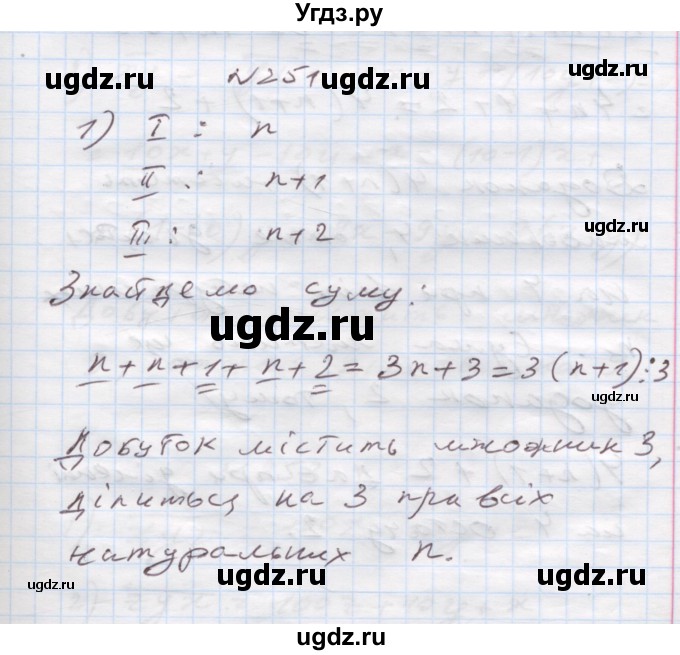 Угдз.ру
ugdz.ru ugdz.ru
№251
1) I : n
II : n+1
III : n+2
Знайдемо суму:
ugdz.ru
n + n + 1 + n + 2 = 3n + 3 = 3 (n+1) ⋮ 3
ugdz.ru
Добуток містить множник 3,
ділиться на 3 при всіх
натуральних n.
ugdz.ru ugdz.ru ugdz.ru
ugdz.ru